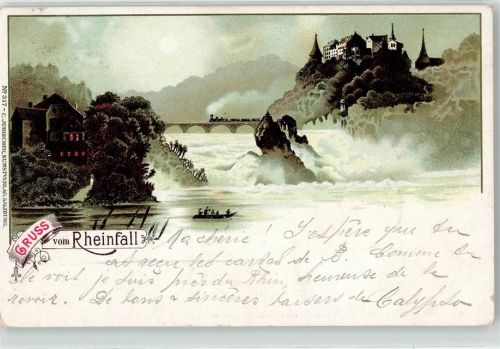 No 317 - C. JURISCHEK, KUNSTVERLAG, SALZBURG.
GRUSS
vom Rheinfall
Ma chérie! J'espère que tu
as reçu les cartes de B. Comme tu
le vois je suis près du Rhin, heureuse de le
revoir. De bons & sincères baisers de Calypso